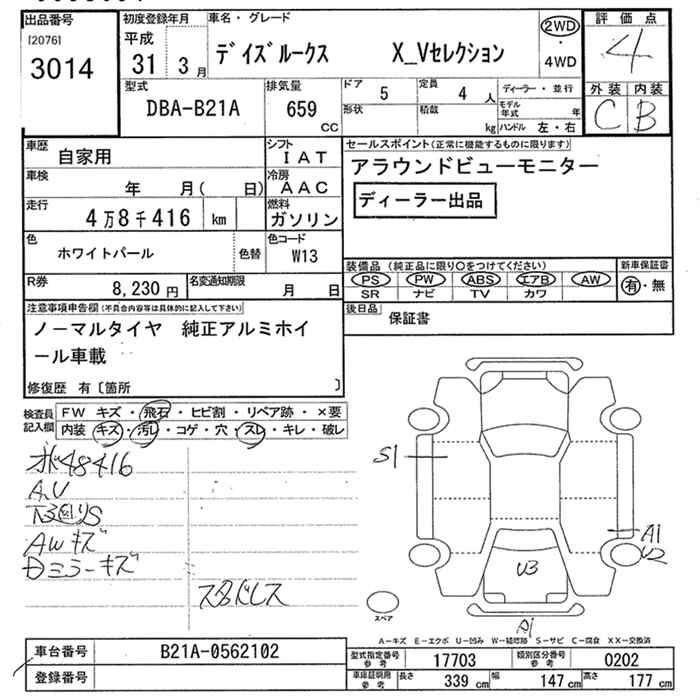 出品番号
[2076]
3014
初度登録年月
平成
31年3月
車名・グレード
デイズルークス X_Vセレクション
2WD
・
4WD
評価点
4
外装 内装
C B
型式
DBA-B21A
排気量
659
cc
ドア 5
定員 4 人
形状
積載 kg
ディーラー・並行
モデル年式 年
ハンドル 左・右
車歴
自家用
シフト
IAT
車検
年 月( 日)
冷房
AAC
走行
4万8千416 km
燃料
ガソリン
色
ホワイトパール
色替
色コード
W13
R券
8,230 円
名変通知期限
月 日
セールスポイント(正常に機能するものに限ります)
アラウンドビューモニター
ディーラー出品
装備品 (純正品に限り○をつけてください)
PS PW ABS エアB AW
SR ナビ TV カワ
新車保証書
有・無
後日品
保証書
注意事項申告欄(不具合内容等は具体的に記入して下さい)
ノーマルタイヤ 純正アルミホイ
ール車載
修復歴 有〔箇所 〕
検査員
記入欄
FW キズ・飛石・ヒビ割・リペア跡・×要
内装 キズ・汚レ・コゲ・穴・スレ・キレ・破レ
48416
A.V
下回りS
AWキズ
Dミラーキズ
スタッドレス
S1
A1
U2
U3
A1
スペア
A-キズ E-エクボ U-凹み W-補修跡 S-サビ C-腐食 XX-交換済
車台番号
B21A-0562102
登録番号
型式指定番号
参考
17703
類別区分番号
参考
0202
車庫証明用
参考
長さ 339 cm 幅 147 cm 高さ 177 cm